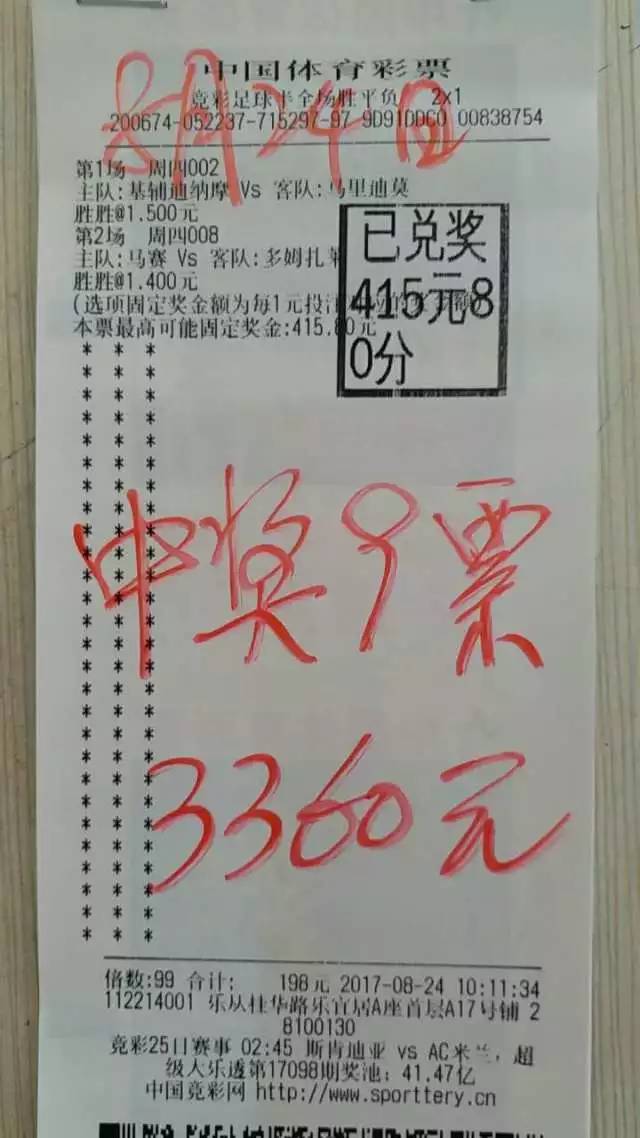 中国体育彩票
竞彩足球半全场胜平负 2x1
200674-052237-715297-97 9D91DDC0 00838754
8月24日
第1场 周四002
主队:基辅迪纳摩 Vs 客队:马里迪莫
胜胜@1.500元
第2场 周四008
主队:马赛 Vs 客队:多姆扎莱
胜胜@1.400元
(选项固定奖金额为每1元投注
本票最高可能固定奖金:415.80元
已兑奖
415元8
0分
* * *
* * *
* * *
* * *
* * *
* * *
* * *
* * *
* * *
* * *
* * *
* * *
* * *
* * *
* * *
* * *
* * *
* * *
* * *
* * *
* * *
* * *
* * *
* * *
* * *
* * *
中奖9票
3360元
倍数:99 合计: 198元 2017-08-24 10:11:34
112214001 乐从桂华路乐宜居A座首层A17号铺 2
8100130
竞彩25日赛事 02:45 斯肯迪亚 vs AC米兰, 超
级大乐透第17098期奖池: 41.47亿
中国竞彩网 http://www.sporttery.cn